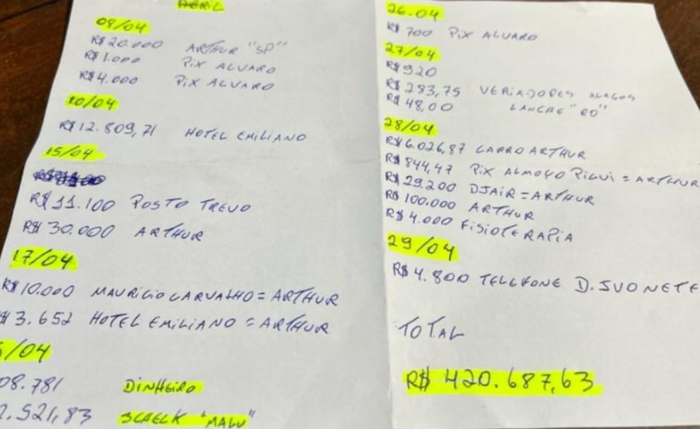 ABRIL
09/04
R$20.000 ARTHUR "SP"
R$1.000 PIX ALVARO
R$4.000 PIX ALVARO
10/04
R$12.809,71 HOTEL EMILIANO
15/04
R$11.100 POSTO TREVO
R$30.000 ARTHUR
17/04
R$10.000 MAURICIO CARVALHO = ARTHUR
$3.652 HOTEL EMILIANO = ARTHUR
/04
08.781 DINHEIRO
.521,83 "MALU"
26.04
R$700 PIX ALVARO
27/04
R$920
R$283,75 VERIADORES
R$48,00 LANCHE "RO"
28/04
R$6.026,87 CARRO ARTHUR
R$844,47 PIX ALMOÇO PIGUI = ARTHUR
R$29.200 DJAIR = ARTHUR
R$100.000 ARTHUR
R$4.000 FISIOTERAPIA
29/04
R$4.800 TELEFONE D. IVONETE
TOTAL
R$420.687,63